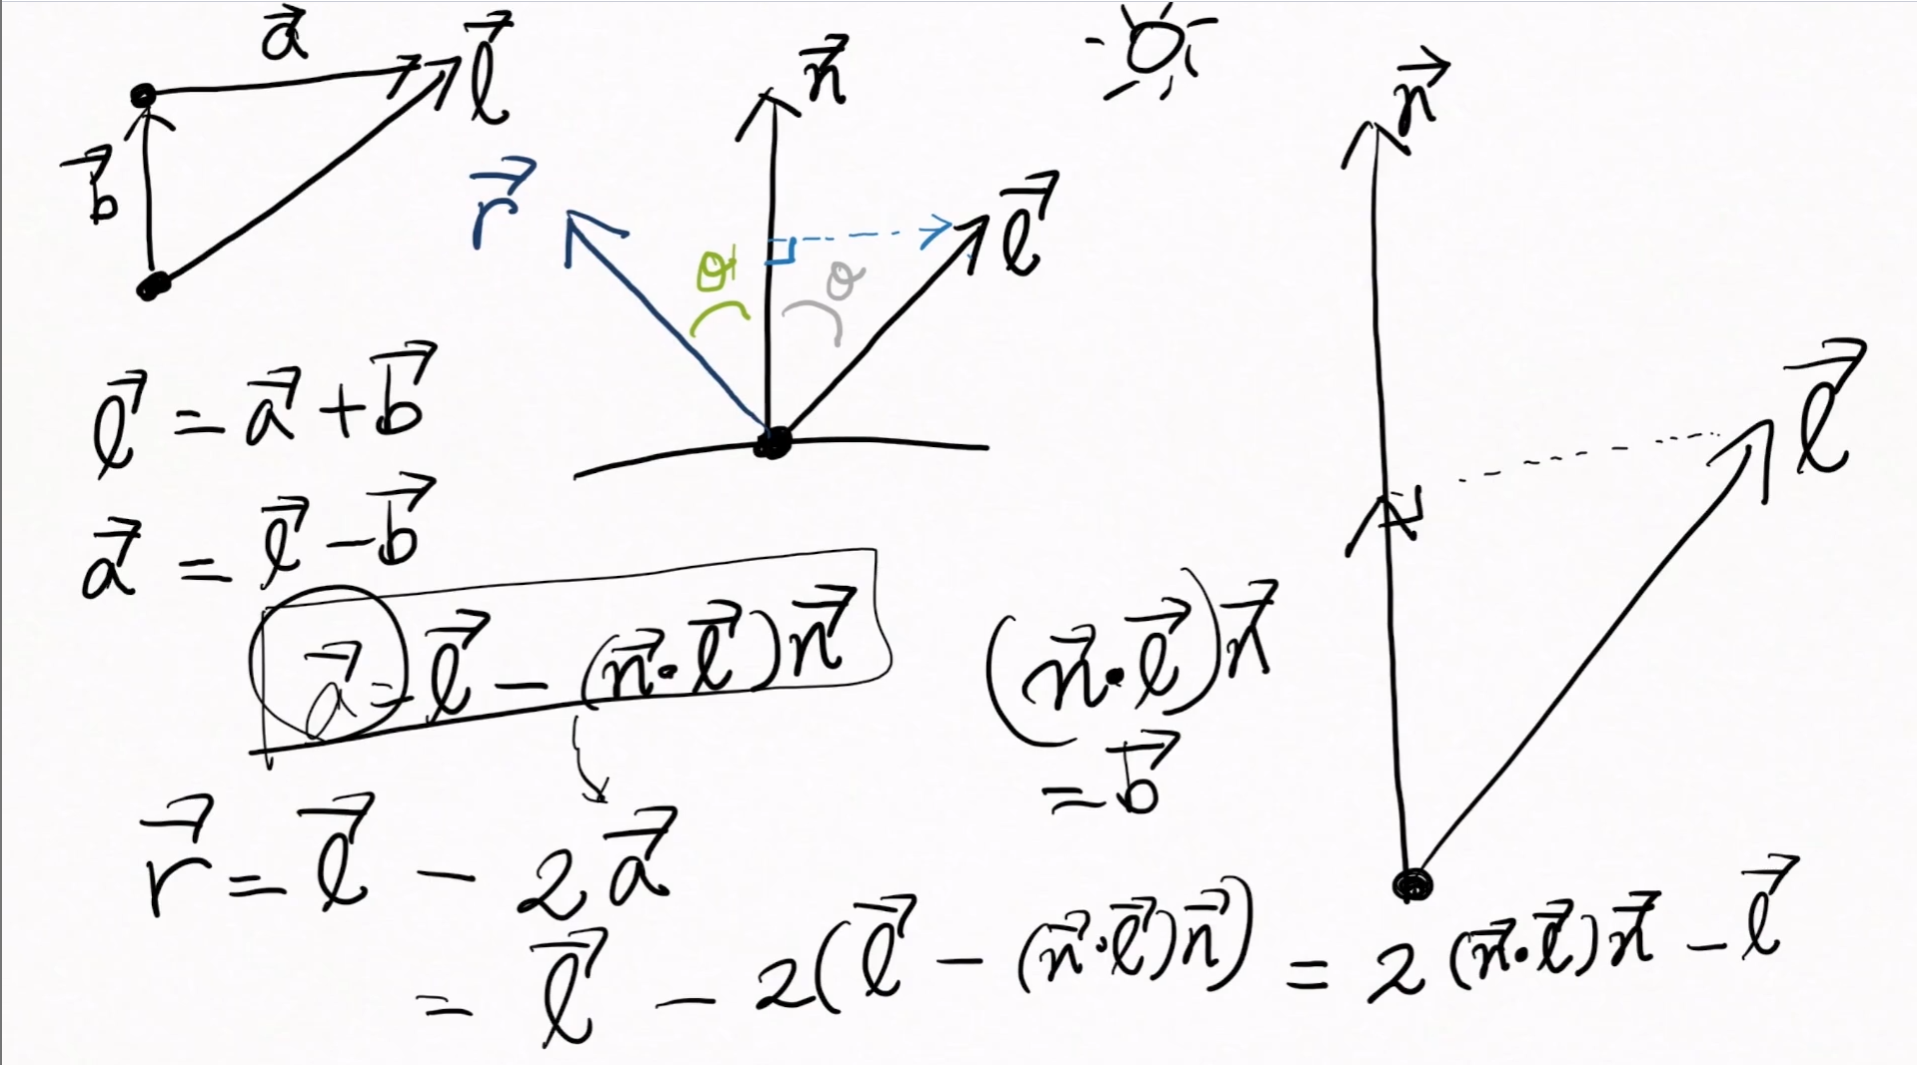 a⃗
l⃗
b⃗
n⃗
r⃗
θ
θ
l⃗
n⃗
l⃗
l⃗ = a⃗ + b⃗
a⃗ = l⃗ - b⃗
a⃗ = l⃗ - (n⃗·l⃗)n⃗
(n⃗·l⃗)n⃗
= b⃗
r⃗ = l⃗ - 2a⃗
= l⃗ - 2(l⃗ - (n⃗·l⃗)n⃗) = 2(n⃗·l⃗)n⃗ - l⃗